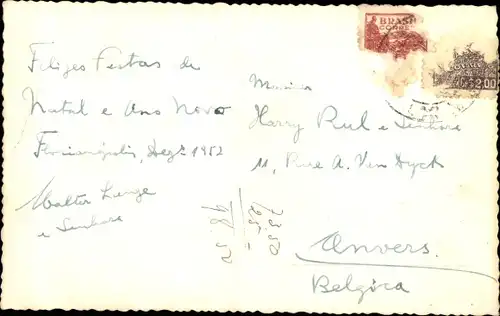 Felizes Festas de
Natal e Ano Novo
Florianópolis, Dez: 1952
Walter Lange
e Senhora
73.50
25 -
98.50
BRASIL
CORREIO
2.00
Monsieur
Harry Rul e Senhora
11, Rue A. Van Dyck
Anvers.
Belgica